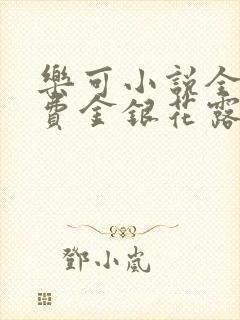 樂可小說全
費金銀花露
鄧小嵐